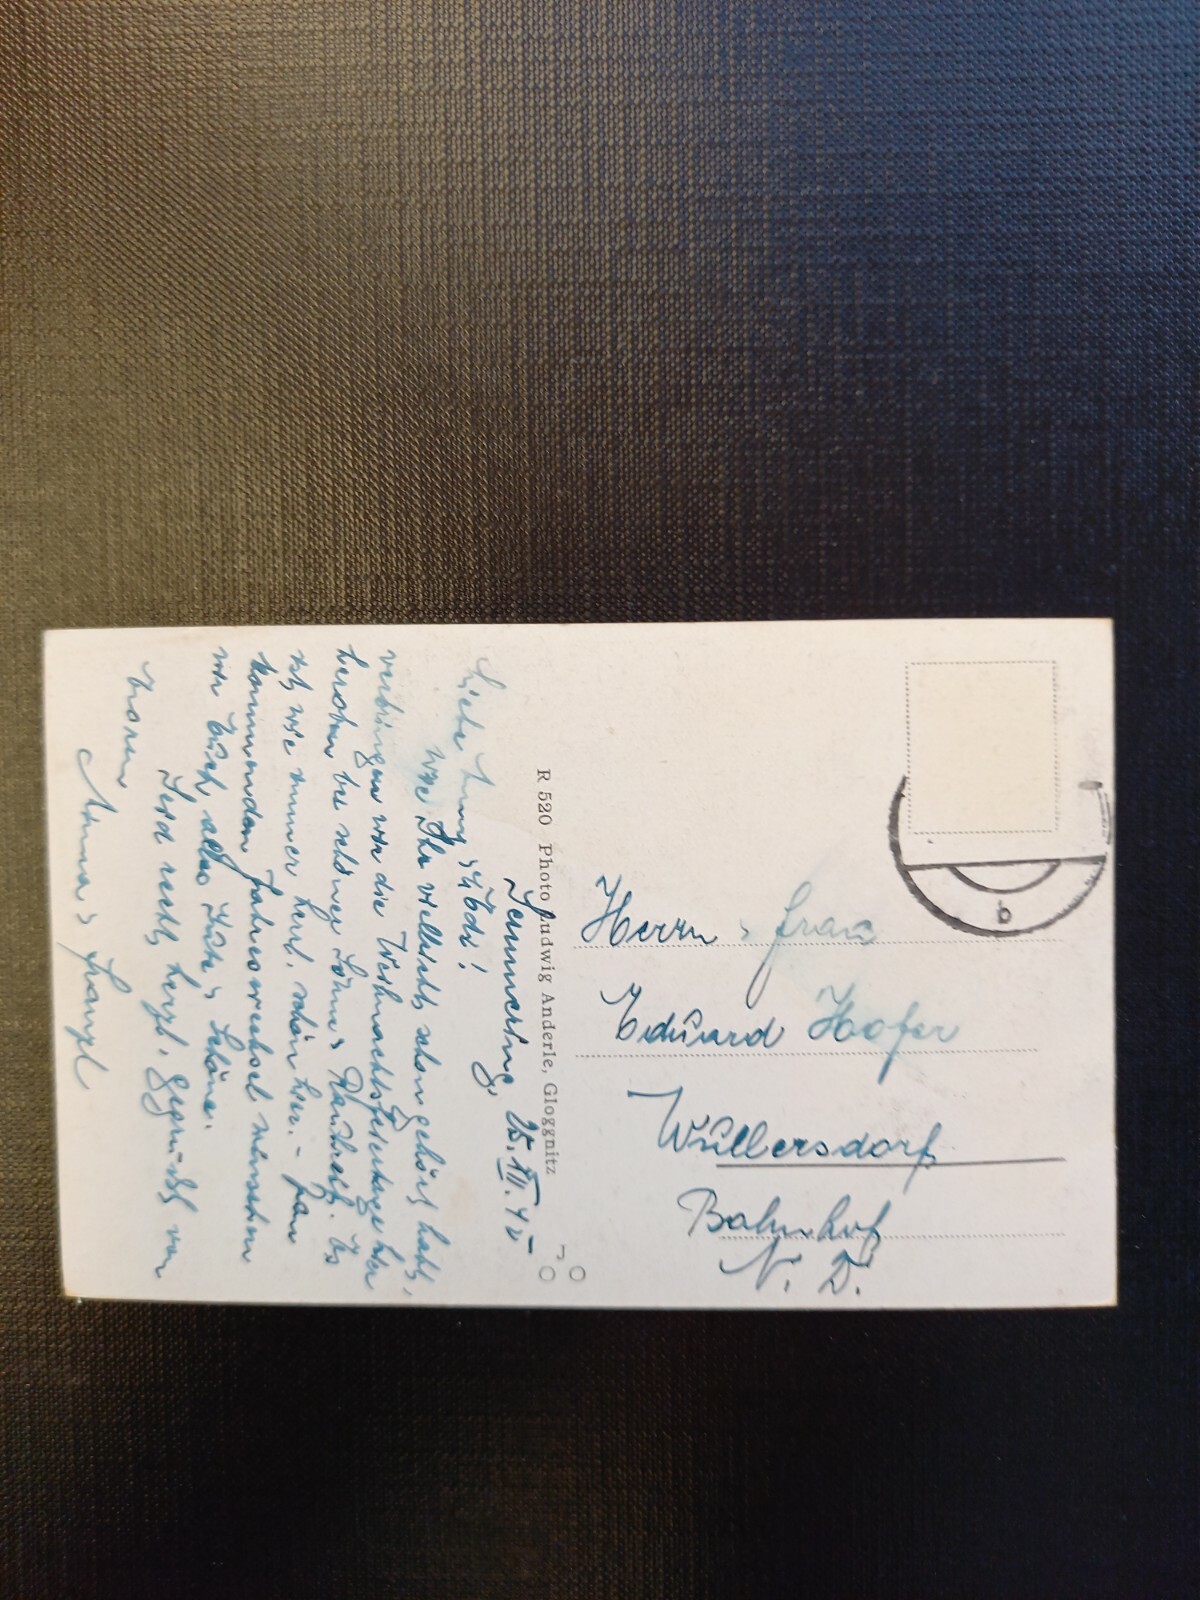 Semmering, 25. XII. 42
Liebe
wie Ihr vielleicht schon gehört habt,
verbringen wir die Weihnachtsfeiertage hier
heroben bei schöner Sonne u. Rauhreif. Es
ist wie immer herrl. schön hier. – Zum
kommenden Jahreswechsel wünschen
wir Euch alles Gute u. Schöne.
Seid recht herzl. gegrüßt von
Euren
Anna u. Franzl
R 520 Photo Ludwig Anderle, Gloggnitz
Herrn u. Frau
Eduard Hofer
Wullersdorf
Bahnhof
N. D.
b